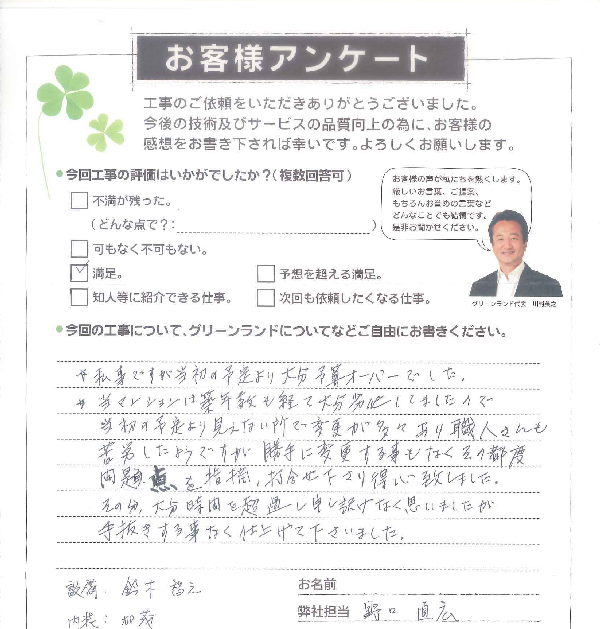 お客様アンケート
工事のご依頼をいただきありがとうございました。
今後の技術及びサービスの品質向上の為に、お客様の
感想をお書き下されば幸いです。よろしくお願いします。
●今回工事の評価はいかがでしたか?(複数回答可)
不満が残った。
(どんな点で?: )
可もなく不可もない。
満足。
予想を超える満足。
知人等に紹介できる仕事。
次回も依頼したくなる仕事。
お客様の声が私たちを熱くします。
厳しいお言葉、ご提案、
もちろんお誉めの言葉など
どんなことでも結構です。
是非お聞かせください。
グリーンランド代表
●今回の工事について、グリーンランドについてなどご自由にお書きください。
私事ですが当初の予定より大分予算オーバーでした。
当マンションは築年数も経て大分劣化してましたので
当初の予定より見えない所で変更が多々あり職人さんも
苦労したようですが勝手に変更する事もなくその都度
問題点を指摘、打合せ下さり得心致しました。
その分、大分時間を超過し申し訳けなく思いましたが
手抜きする事なく仕上げて下さいました。
設備: 鈴木
お名前
内装:
弊社担当 野口 直広